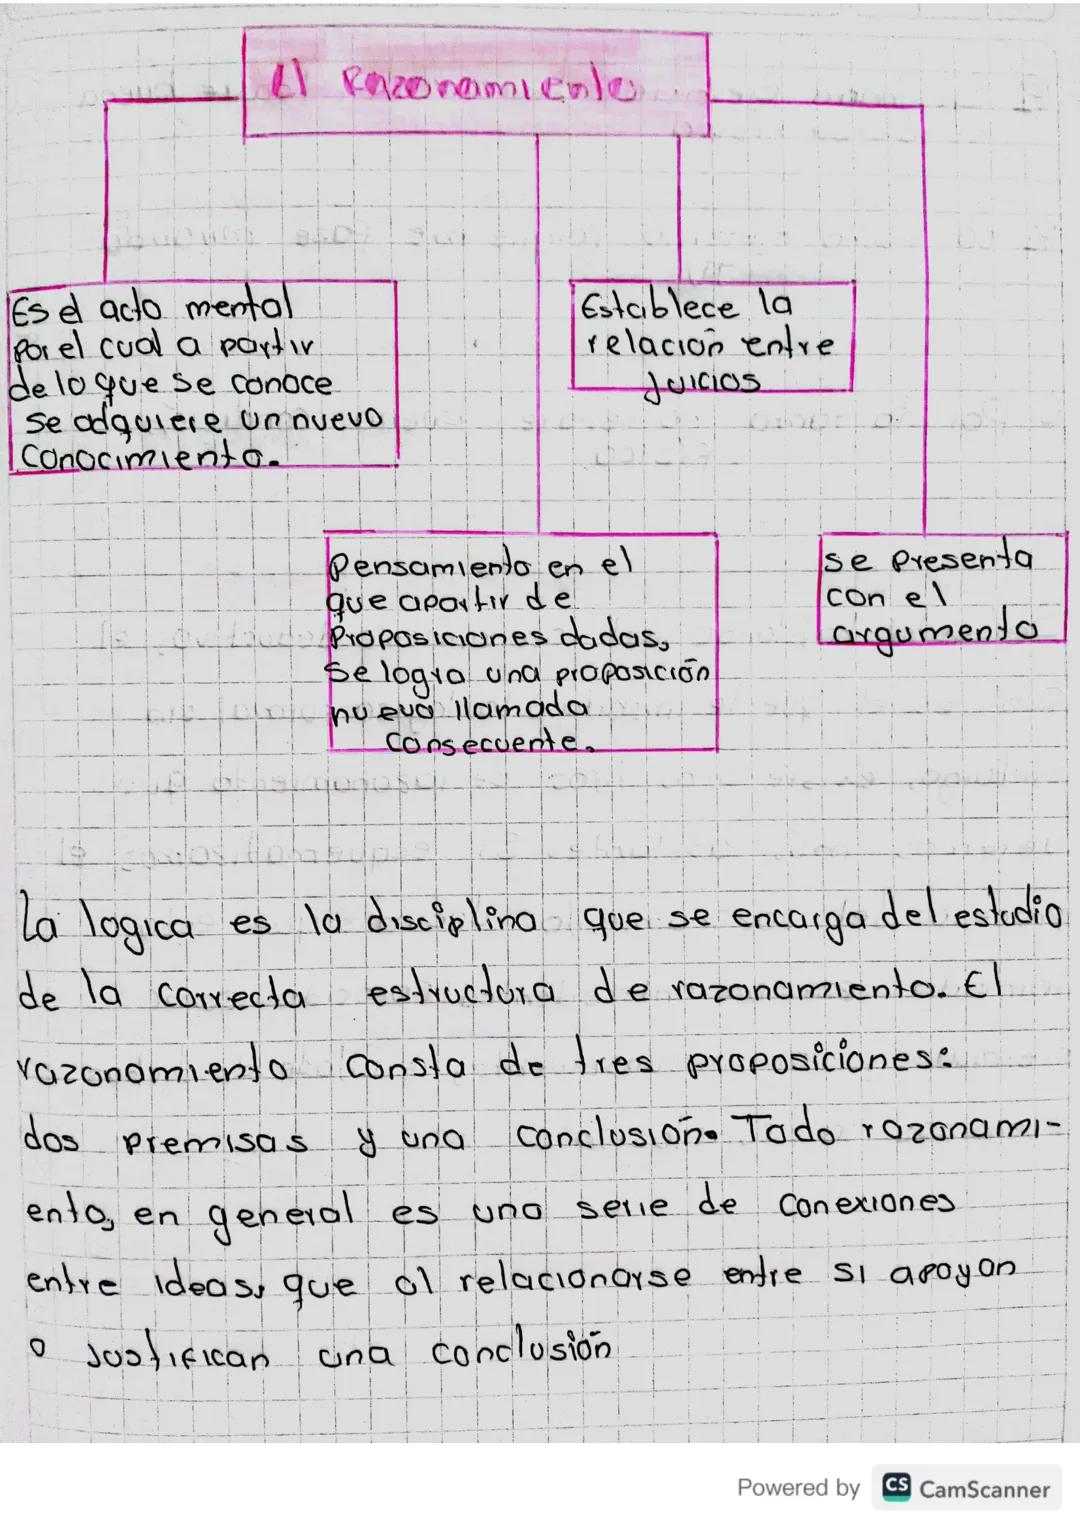 El Razonamiento
Es el acto mental
Por el cual a partir
de lo que se conoce
se adquiere un nuevo
conocimiento.
Establece la
relación entre
Juicios
Pensamiento en el
que apartir de
Proposiciones dadas,
se logra una proposición
nueva llamada
consecuente.
se presenta
con el
argumento
La logica es la disciplina que se encarga del estudio
de la correcta estructura de razonamiento. El
razonamiento consta de tres proposiciones:
dos premisas y una conclusión. Todo razonami-
ento, en general es una serie de conexiones
entre ideas, que al relacionarse entre si apoyan
o justifican una conclusión
Powered by CS CamScanner